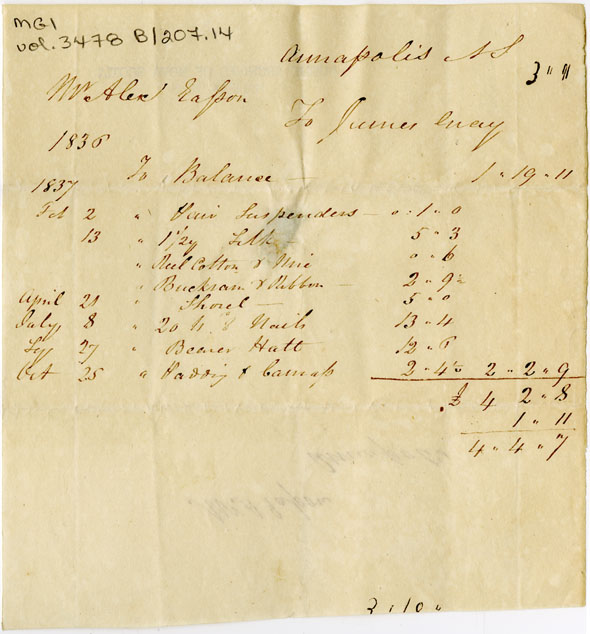 MG1
vol. 3478 B/207.14
Annapolis N S
3 " 9
Mr Alexr Easson
To James Gray
1836
To Balance — 1 " 19 " 11
1837
Feb 2 " Pair Suspenders — 0 " 1 " 0
13 " 1 1/2 y Silk 5 " 3
" Reel Cotton & 0 " 6
" Buckram & Ribbon — 2 " 9 1/2
April 21 " Shovel — 5 " 0
July 8 " 20 Nails 13 " 4
Sep 27 " Beaver Hatt 12 " 6
Oct 25 " Padding & Canvass 2 " 4 1/2 2 " 2 " 9
£ 4 2 " 8
1 " 11
4 " 4 " 7
2 " 10 "